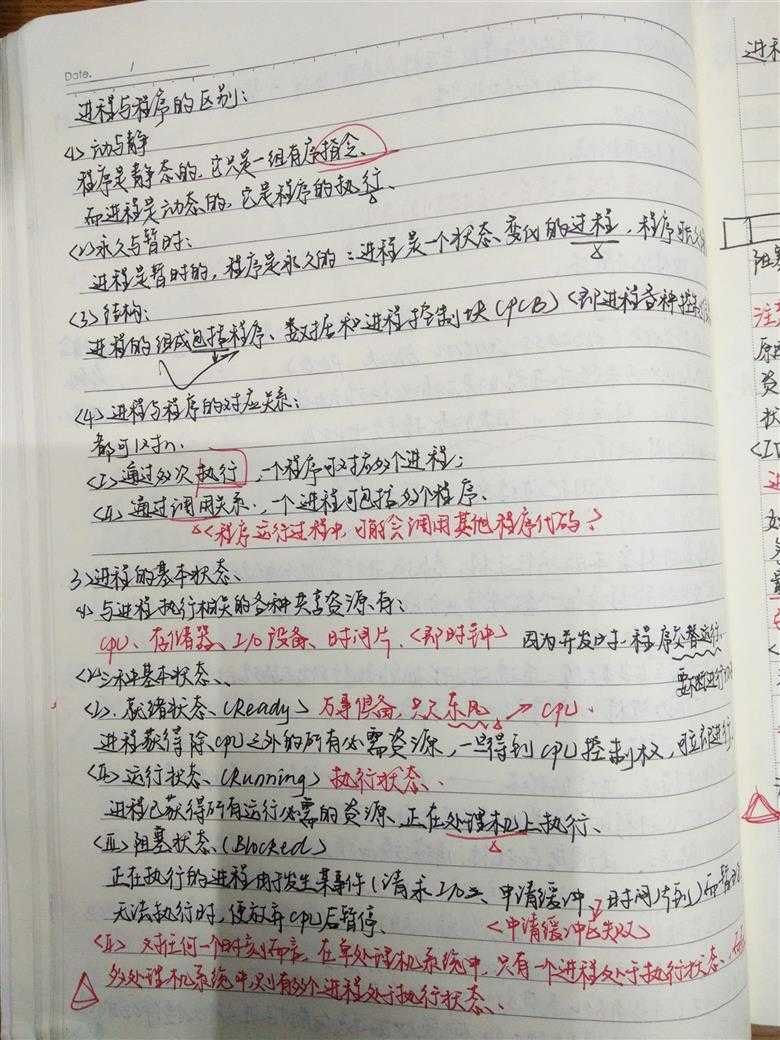 Date. 1
进程与程序的区别:
<1>动与静
程序是静态的,它只是一组有序指令、
而进程是动态的,它是程序的执行、
<2>永久与暂时:
进程是暂时的,程序是永久的:进程是一个状态变化的过程,程序可长久
<3>结构:
进程的组成包括程序、数据和进程控制块(PCB)<即进程各种控制
<4>进程与程序的对应关系:
都可1对n.
<I>通过多次执行,一个程序可对应多个进程;
<II>通过调用关系,一个进程可包括多个程序、
<程序运行过程中,可能会调用其他程序代码>
3>进程的基本状态、
<1>与进程执行相关的各种共享资源有:
CPU、存储器、I/O设备、时间片、<即时钟> 因为并发时,程序交替运行,
要不断进行
<2>三种基本状态、
<I>.就绪状态、(Ready) 万事俱备,只欠东风 → CPU.
进程获得除CPU之外的所有必需资源,一旦得到CPU控制权,可立即运行、
<II>运行状态、(Running) 执行状态、
进程已获得所有运行必需的资源、正在处理机上执行、
<III>阻塞状态、(Blocked)
正在执行的进程由于发生某事件(请求I/O、申请缓冲、时间片到)而暂时
无法执行时,便放弃CPU后暂停、
<申请缓冲区失败>
对任何一个时刻而言,在单处理机系统中,只有一个进程处于执行状态、
多处理机系统中,则有多个进程处于执行状态、
进程
阻塞
注
原
资
状